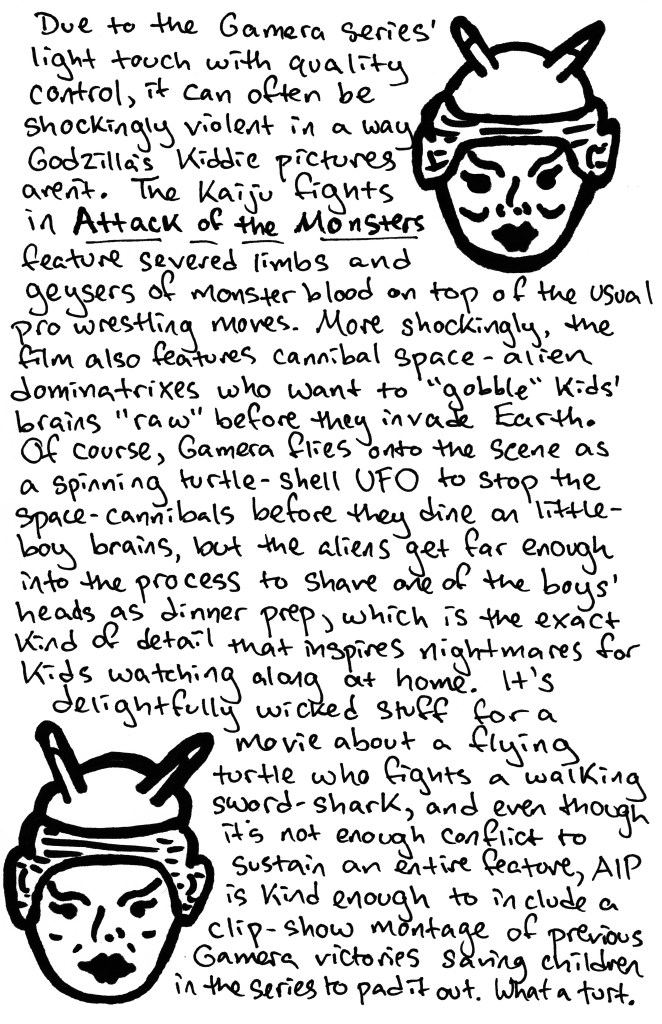 Due to the Gamera series'
light touch with quality
control, it can often be
shockingly violent in a way
Godzilla's kiddie pictures
aren't. The Kaiju fights
in Attack of the Monsters
feature severed limbs and
geysers of monster blood on top of the usual
pro wrestling moves. More shockingly, the
film also features cannibal space-alien
dominatrixes who want to "gobble" kids'
brains "raw" before they invade Earth.
Of course, Gamera flies onto the scene as
a spinning turtle-shell UFO to stop the
space-cannibals before they dine on little-
boy brains, but the aliens get far enough
into the process to shave one of the boys'
heads as dinner prep, which is the exact
kind of detail that inspires nightmares for
kids watching along at home. It's
delightfully wicked stuff for a
movie about a flying
turtle who fights a walking
sword-shark, and even though
it's not enough conflict to
sustain an entire feature, AIP
is kind enough to include a
clip-show montage of previous
Gamera victories saving children
in the series to pad it out. What a turt.